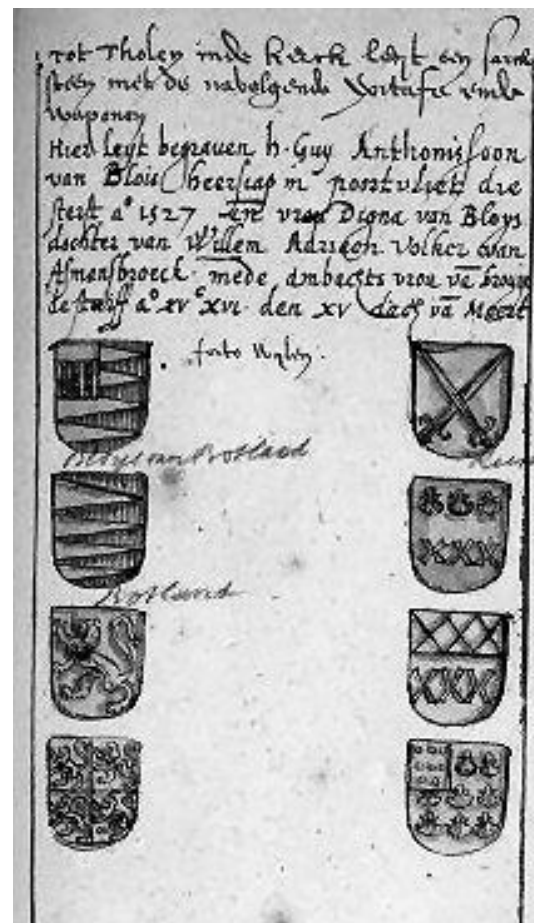 tot Tholen inde kerck leyt een sarck
steen met de navolgende epitafie ende
wapenen
Hier leyt begraven h. Guy Anthonissoon
van Blois heerscap in poortvliet die
sterft aº 1527 en vrou Digna van Bloys
dochter van Willem Adriaen Volker van
mede ambachts vrou vā
de sterff aº xvᶜ xvi. den xv dach vā Meert
Bloys van Botland
Botland